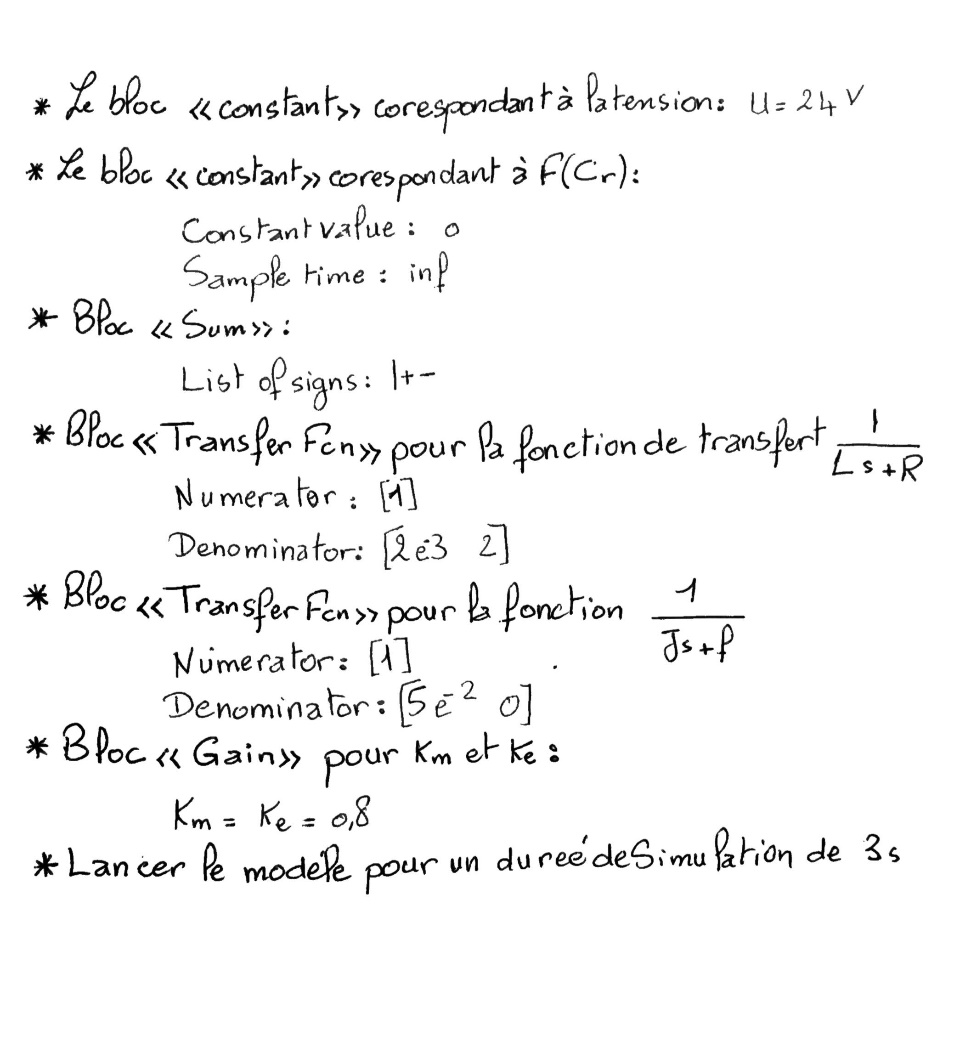 * Le bloc «constant» corespondant à la tension: U = 24 V
* Le bloc «constant» corespondant à F(Cr):
Constant value : 0
Sample time : inf
* Bloc «Sum»:
List of signs: |+-
* Bloc «Transfer Fcn» pour la fonction de transfert 1/(Ls+R)
Numerator : [1]
Denominator: [2e-3 2]
* Bloc «Transfer Fcn» pour la fonction 1/(Js+f)
Numerator: [1]
Denominator: [5e-2 0]
* Bloc «Gain» pour Km et Ke :
Km = Ke = 0,8
* Lancer le modèle pour un dureé de Simulation de 3s